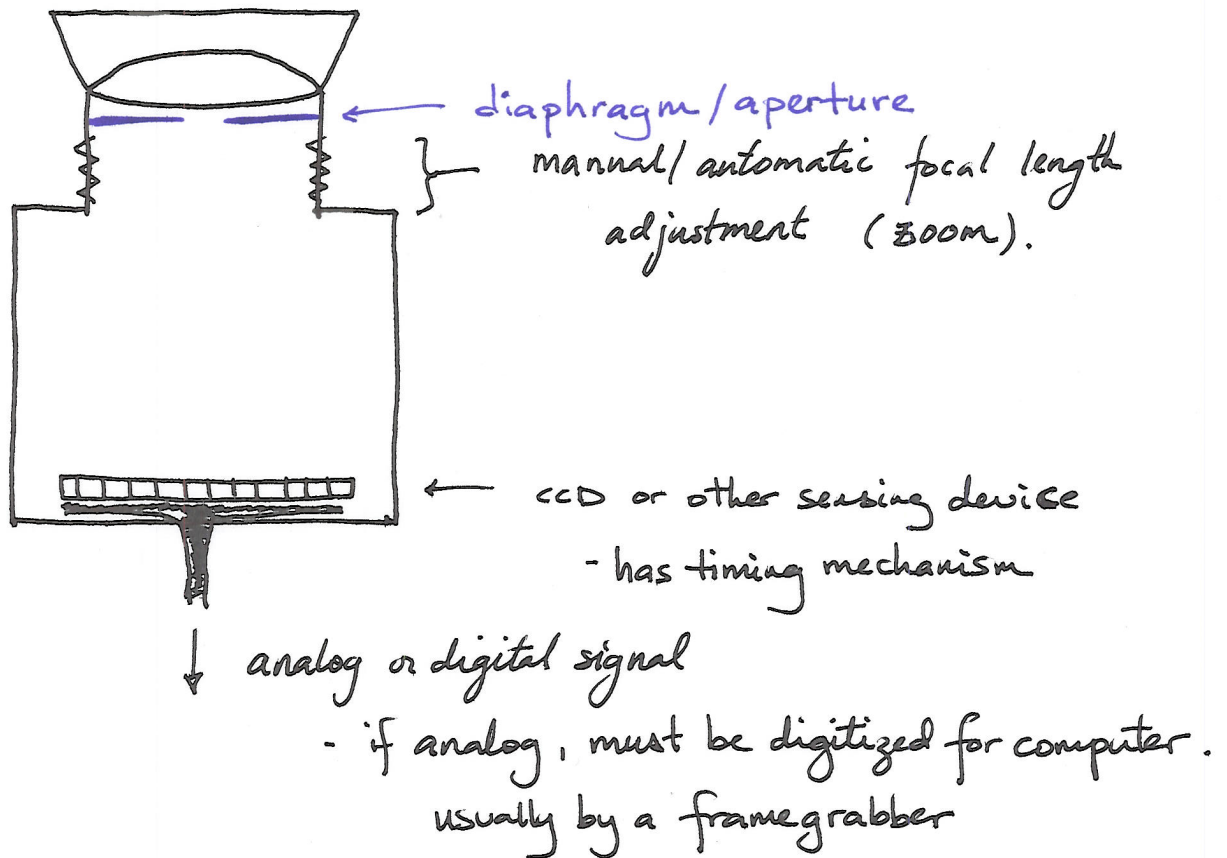 diaphragm/aperture
manual/automatic focal length
adjustment (zoom).
CCD or other sensing device
- has timing mechanism
analog or digital signal
- if analog, must be digitized for computer.
usually by a framegrabber